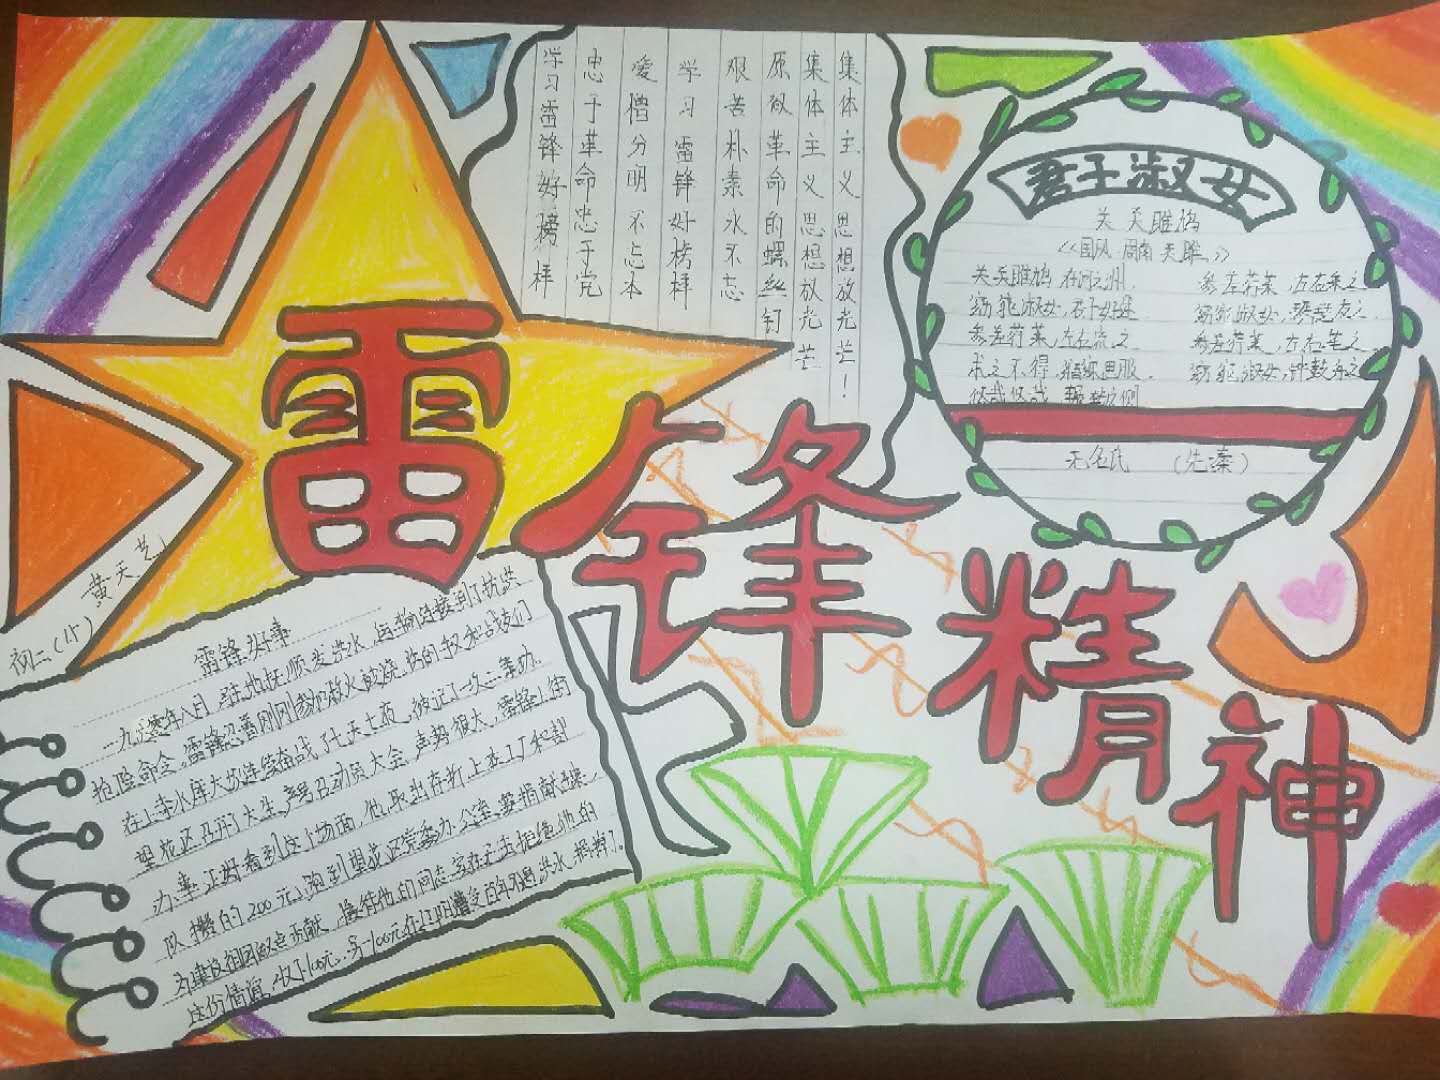 学习雷锋好榜样
忠于革命忠于党
爱憎分明不忘本
学习雷锋好榜样
艰苦朴素永不忘
原做革命的螺丝钉
集体主义思想放光芒
集体主义思想放光芒！
君子淑女
关关雎鸠
《国风·周南·关雎》
关关雎鸠,在河之洲.
窈窕淑女,君子好逑.
参差荇菜,左右流之
求之不得,寤寐思服.
悠哉悠哉,辗转反侧
参差荇菜,左右采之
窈窕淑女,琴瑟友之.
参差荇菜,左右芼之.
窈窕淑女,钟鼓乐之
无名氏 (先秦)
雷锋精神
初二(15) 黄天艺
雷锋好事
一九六零年八月,驻地抚顺发洪水,运输连接到了抗洪
抢险命令.雷锋忍着刚刚参加救火被烧伤的手和战友们
在上寺水库大坝连续奋战了七天七夜,被记了一次二等功.
望花区召开了大生产号召动员大会,声势很大,雷锋上街
办事正好看到这个场面,他取出存折上在工厂和部
队攒的200元,跑到望花区党委办公室要捐献出来,
为建设祖国做点贡献,接待他的同志实在无法拒绝他的
这份情谊,收下100元.另一100元在辽阳遭受百年不遇洪水捐献了。